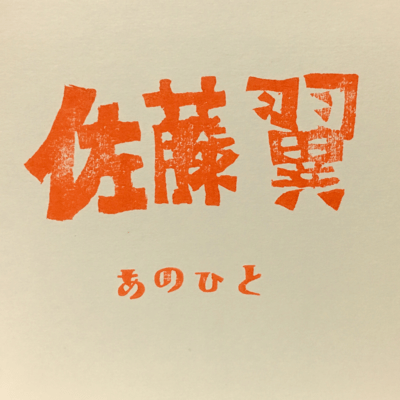 佐藤翼
あのひと